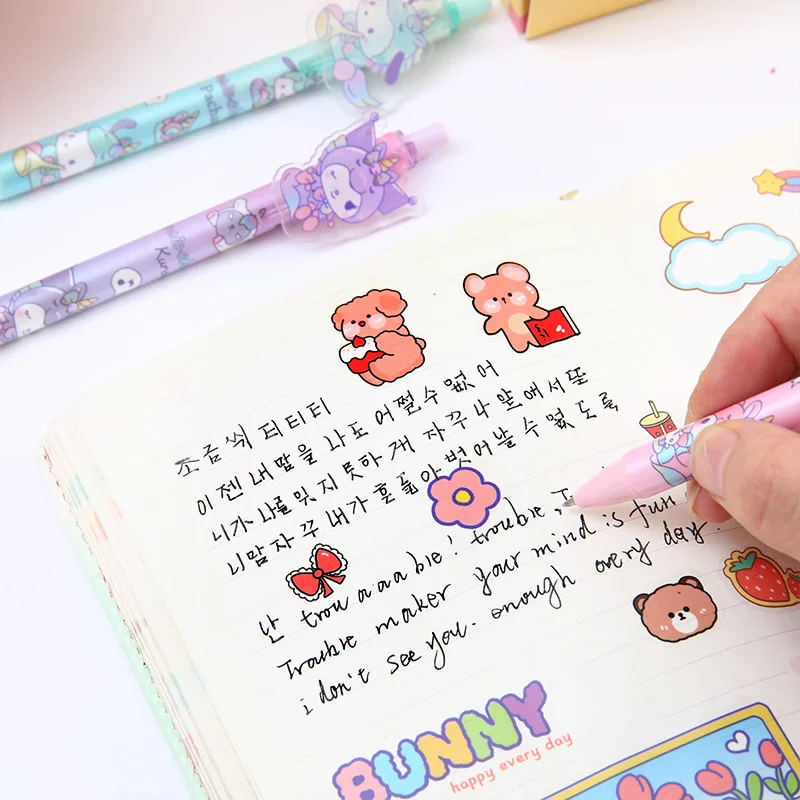 조금씩 티티티
이젠 내맘을 나도 어쩔수없어
니가 나를 잊지 못하게 자꾸 나 앞에서 또
니맘 자꾸 내가 흔들어 벗어날 수 없도록
난 trou a a a ble! trouble
Trouble maker your mind is fun
i don't see you. enough every day.
BUNNY
happy every day